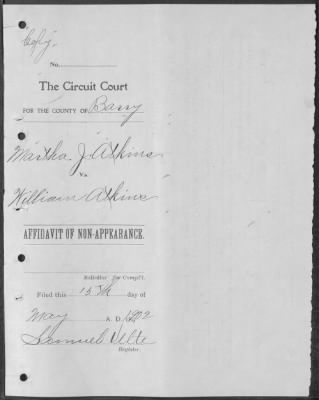 Copy.
No.
The Circuit Court
FOR THE COUNTY OF Barry
Martha J. Atkins
Vs.
William Atkins
AFFIDAVIT OF NON-APPEARANCE.
Solicitor for Compl't.
Filed this 15th day of
May A. D. 1902
Samuel Velte
Register